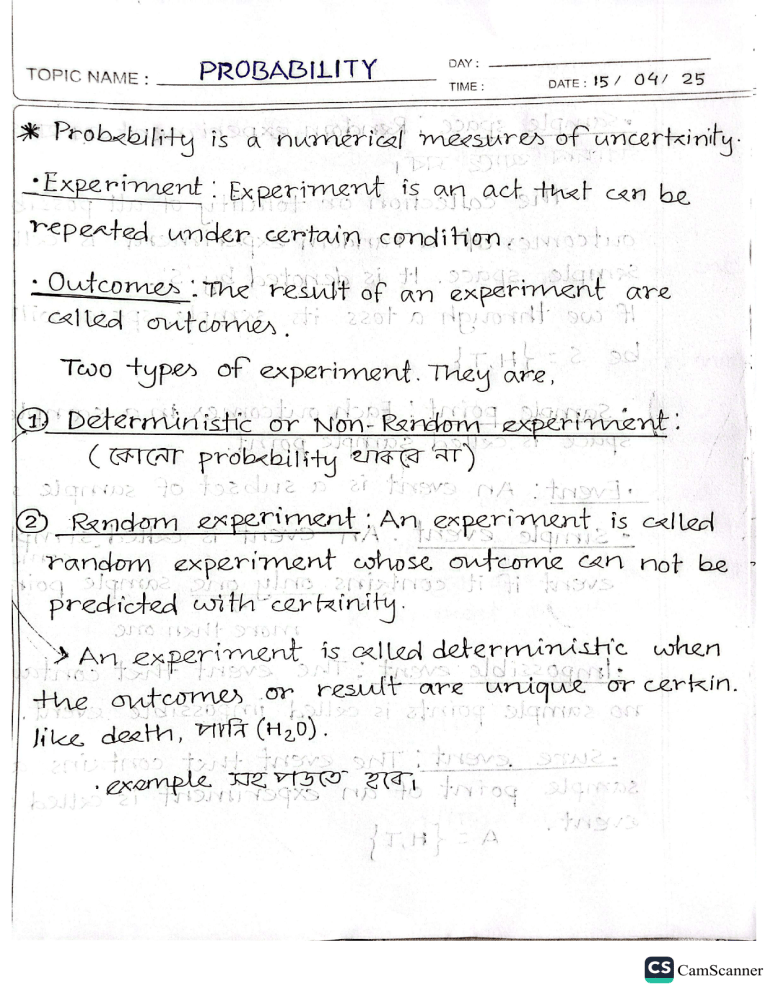 TOPIC NAME : PROBABILITY
DAY :
TIME :
DATE : 15 / 04 / 25
* Probability is a numerical measures of uncertainity.
• Experiment : Experiment is an act that can be
repeated under certain condition.
• Outcomes : The result of an experiment are
called outcomes.
Two types of experiment. They are,
① Deterministic or Non-Random experiment :
( কোনো probability থাকবে না )
② Random experiment : An experiment is called
random experiment whose outcome can not be
predicted with certainity.
→ An experiment is called deterministic when
the outcomes or result are unique or certain.
like death, পানি (H₂O).
• example সহ পড়তে হবে।
CS CamScanner